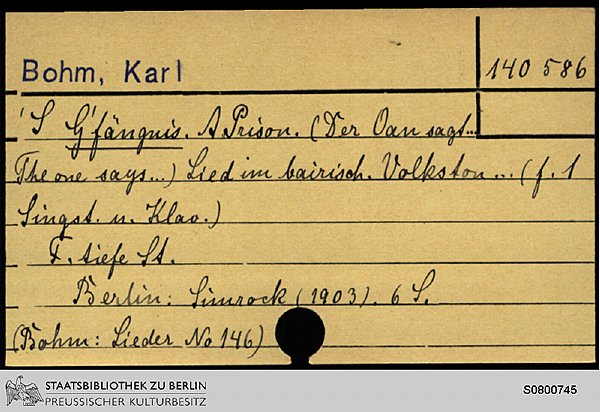 Bohm, Karl
140 586
'S G'fängnis. A Prison. (Der Oan sagt...
The one says...) Lied im bairisch. Volkston... (f. 1
Singst. u. Klav.)
F. tiefe St.
Berlin: Simrock (1903). 6 S.
(Bohm: Lieder No 146)
STAATSBIBLIOTHEK ZU BERLIN
PREUSSISCHER KULTURBESITZ
S0800745